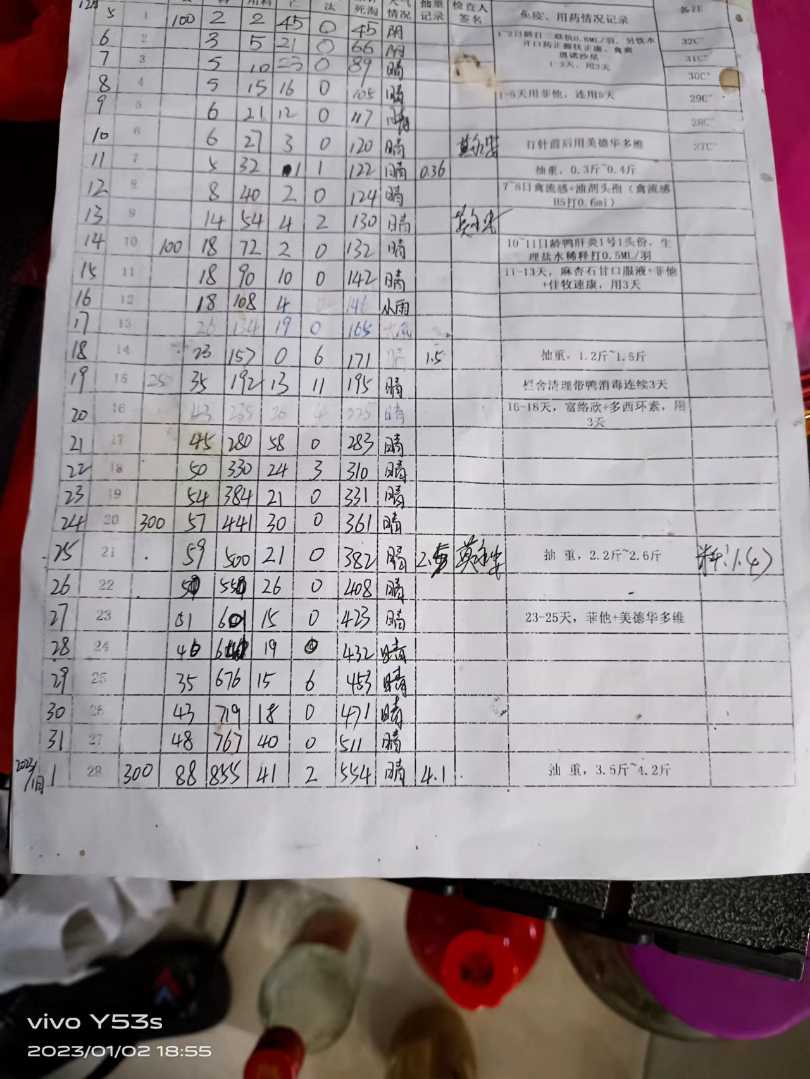 12月 料 用料 亡 法 死淘 天气情况 抽重记录 检查人签名 免疫、用药情况记录 备注
5 1 100 2 2 45 0 45 阴
6 2 3 5 21 0 66 阴 32C°
7 3 5 10 23 0 89 晴 1-3天，用3天 31C°
8 4 5 15 16 0 105 晴 1-5天用菲他，连用5天 30C°
9 5 6 21 12 0 117 晴 29C°
28C°
10 6 6 27 3 0 120 晴 打针前后用美德华多维 27C°
11 7 5 32 1 1 122 晴 0.36 抽重，0.3斤~0.4斤
12 8 8 40 2 0 124 晴 7~8日禽流感+油剂头孢（禽流感H5打0.6ml）
13 9 14 54 4 2 130 晴
14 10 100 18 72 2 0 132 晴 10~11日龄鸭肝炎1号1头份，生理盐水稀释打0.5ML/羽
15 11 18 90 10 0 142 晴 11-13天，麻杏石甘口服液+菲他+佳牧速康，用3天
16 12 18 108 4 146 小雨
17 13 26 134 19 0 165
18 14 23 157 0 6 171 晴 1.5 抽重，1.2斤~1.5斤
19 15 250 35 192 13 11 195 晴 栏舍清理带鸭消毒连续3天
20 16 43 235 26 4 225 晴 16-18天，富络欣+多西环素，用3天
21 17 45 280 58 0 283 晴
22 18 50 330 24 3 310 晴
23 19 54 384 21 0 331 晴
24 20 300 57 441 30 0 361 晴
25 21 59 500 21 0 382 晴 抽 重，2.2斤~2.6斤
26 22 26 0 408 晴
27 23 15 0 423 晴 23-25天，菲他+美德华多维
28 24 19 0 432 晴
29 25 35 676 15 6 453 晴
30 26 43 719 18 0 471 晴
31 27 48 767 40 0 511 晴
2023/1月 1 28 300 88 855 41 2 554 晴 4.1 抽 重，3.5斤~4.2斤
vivo Y53s
2023/01/02 18:55